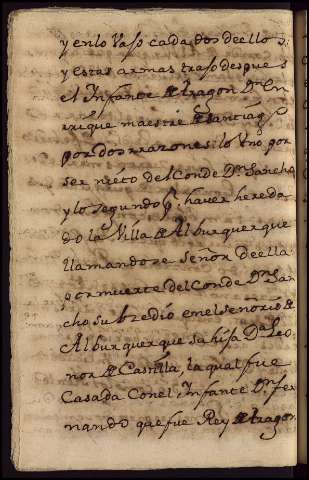 y en lo Vaso cada dos de ellos;
y estas armas traso despues
el Infante de Aragon Dn. En
rrique maestre de Santiago
por dos rrazones: lo Uno por
ser nieto del Conde Dn. Sancho
y lo segundo pr. haver hereda
do la Villa de Alburquerque
llamandose Señor de ella
por muerte del Conde Dn. San
cho subcedió en el señorio de
Alburquerque su hija Da. Leo
nor de Castilla, la qual fue
Casada Con el Infante Dn. fer
nando que fue Rey de Aragon